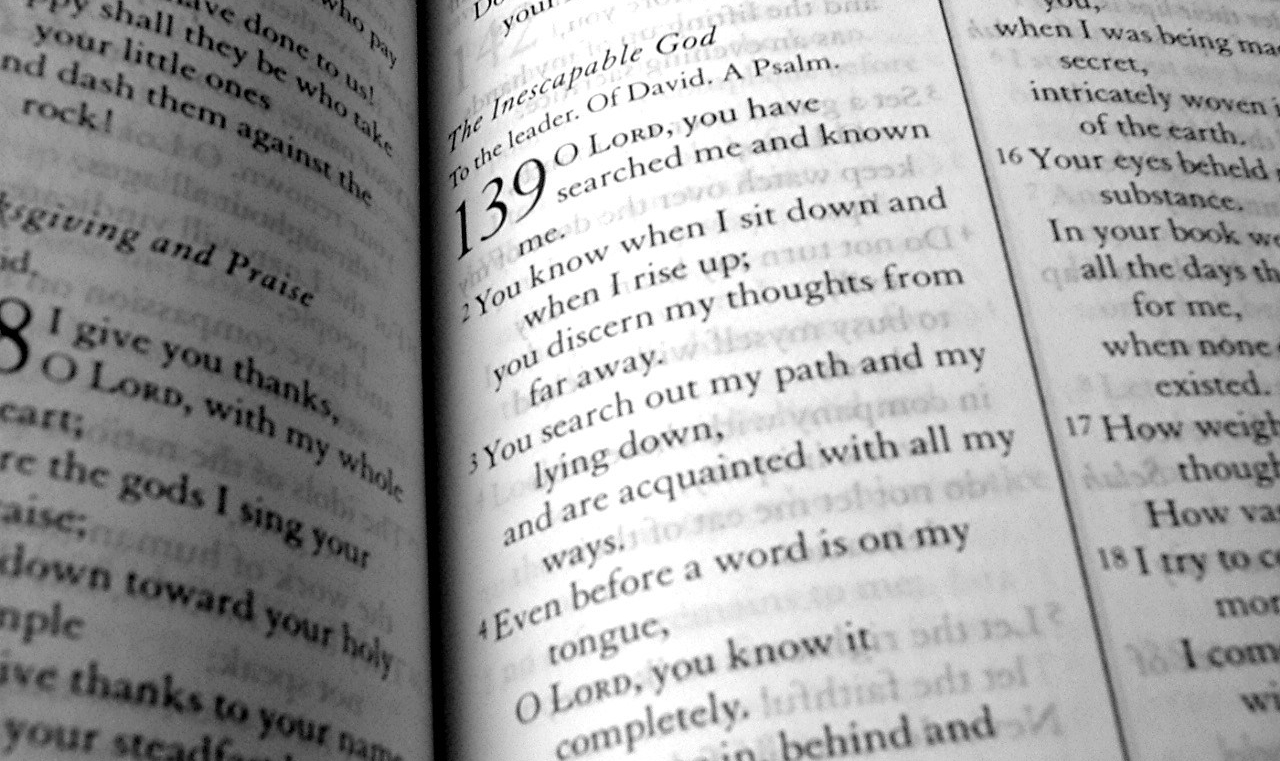 who pay
have done to us!
shall they be who take
your little ones
dash them against the
rock!
and Praise
8 I give you thanks,
O LORD, with my whole
the gods I sing your
down toward your holy
thanks to your name
your
your
The Inescapable God
To the leader. Of David. A Psalm.
139 O LORD, you have
searched me and known
me.
2 You know when I sit down and
when I rise up;
you discern my thoughts from
far away.
3 You search out my path and my
lying down,
and are acquainted with all my
ways.
4 Even before a word is on my
tongue,
O LORD, you know it
completely.
in, behind and
you,
when I was being
secret,
intricately woven
of the earth.
16 Your eyes beheld
substance.
In your book
all the days
for me,
when none
existed.
17 How
How
18 I try to
I